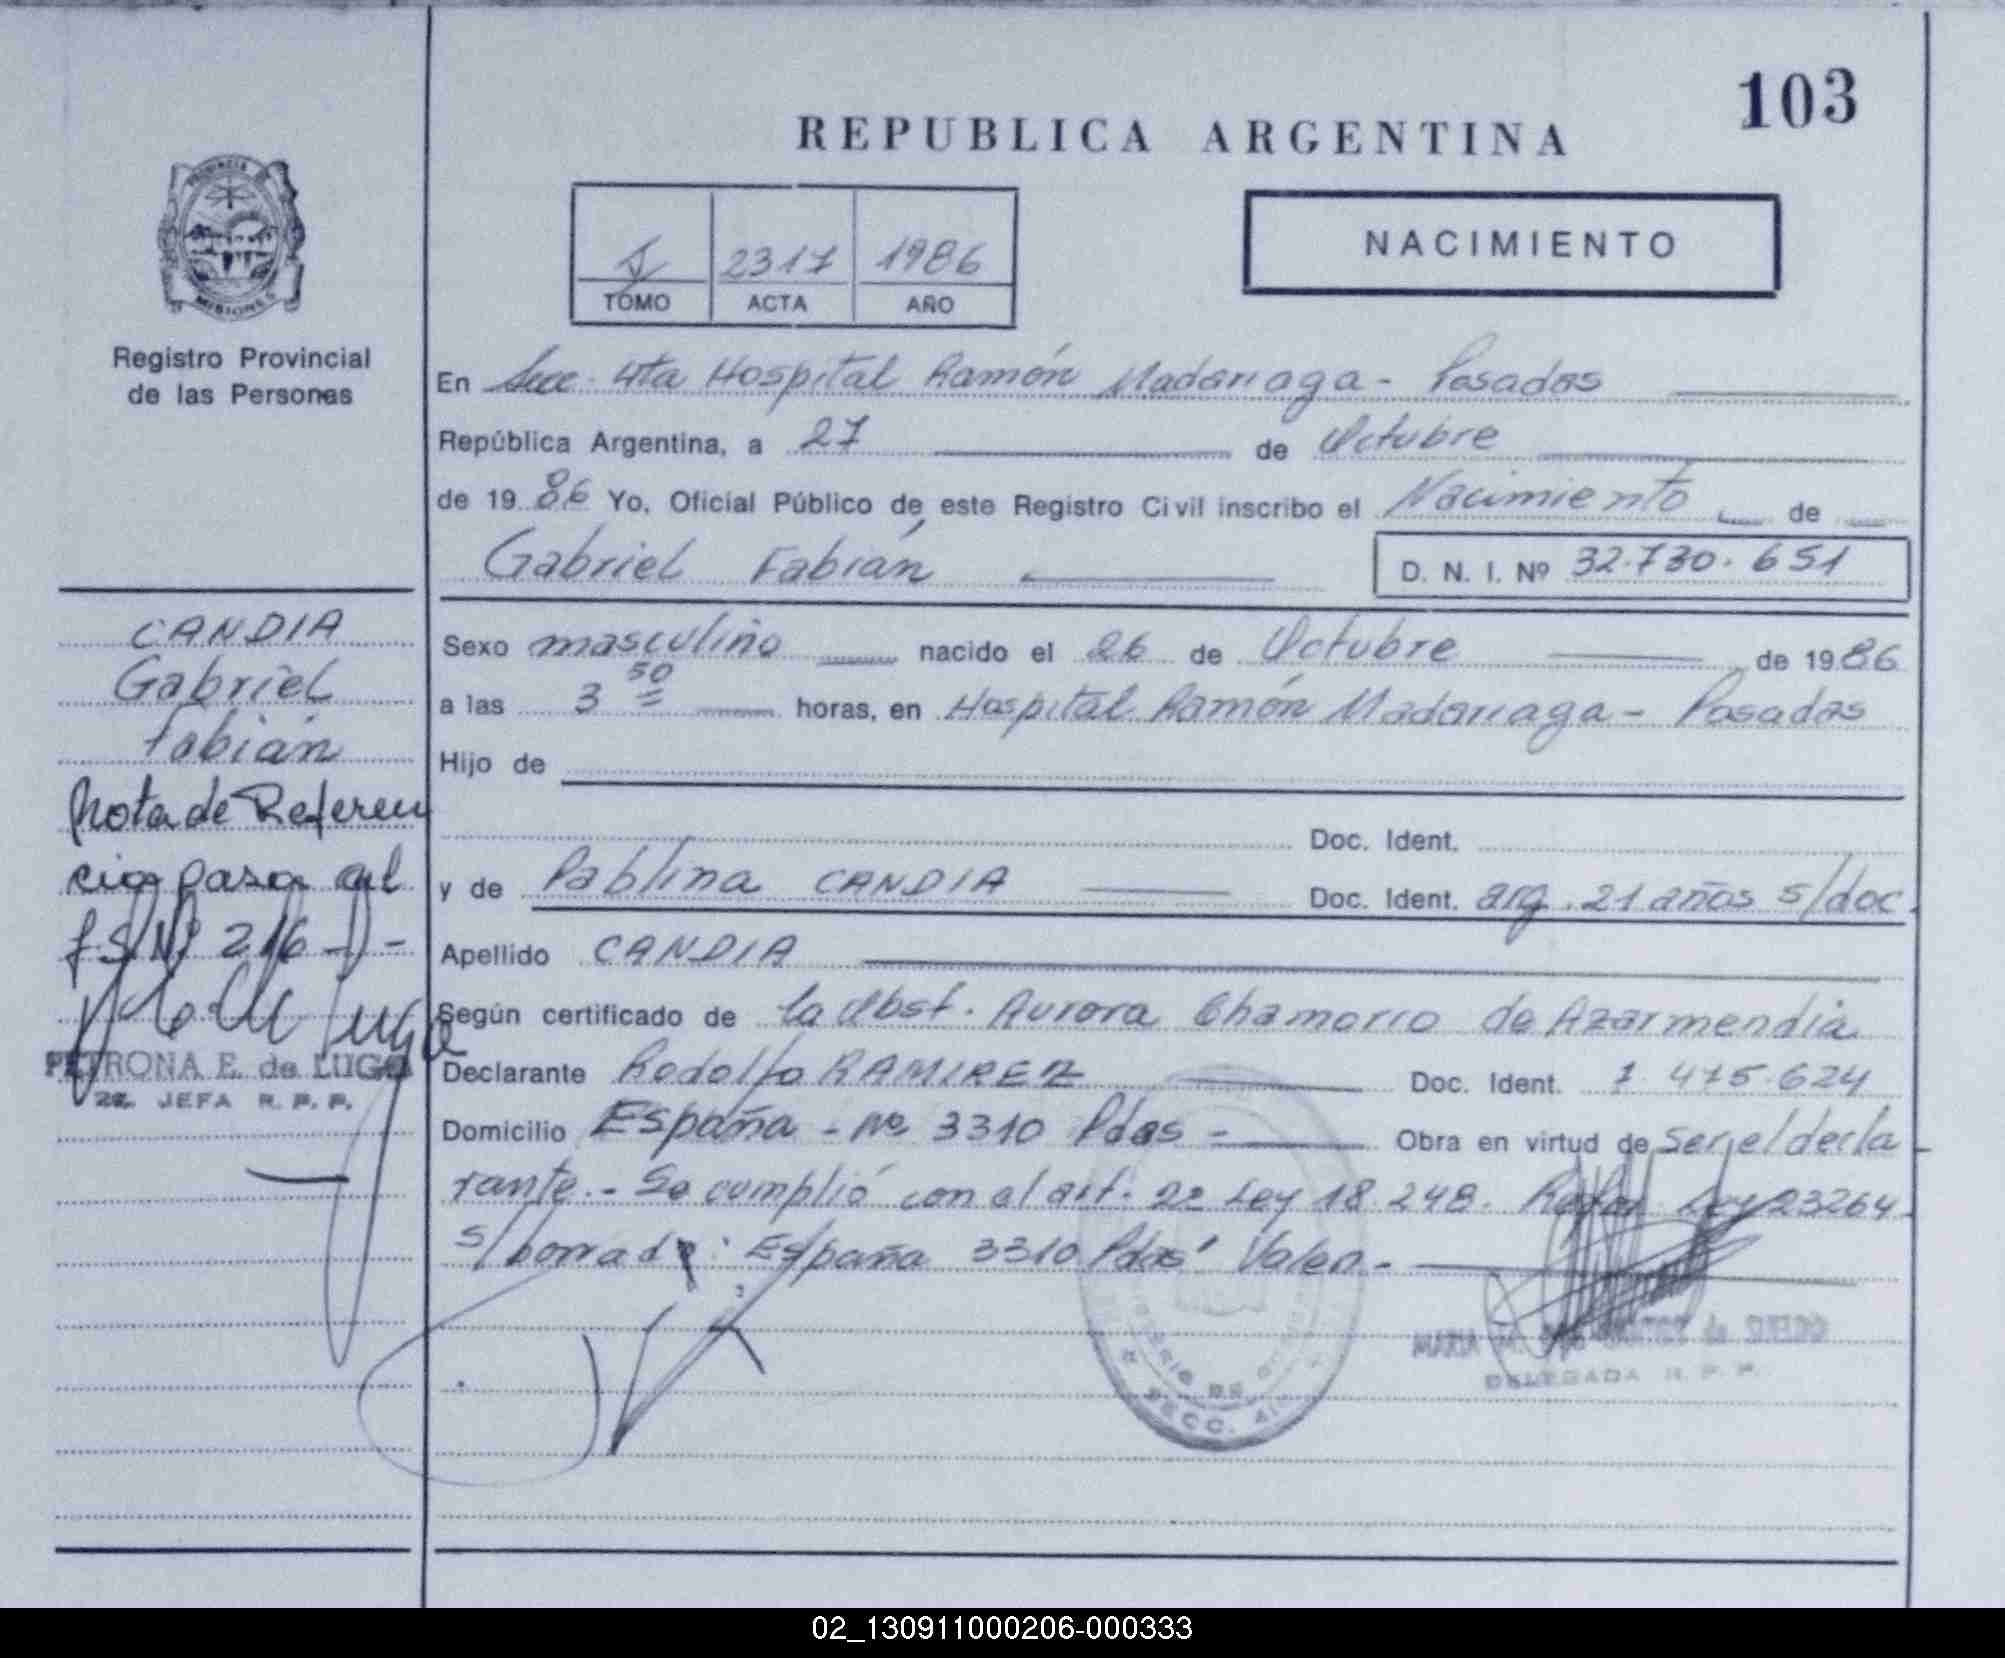 103
REPUBLICA ARGENTINA
PROVINCIA DE
MISIONES
Registro Provincial
de las Personas
2317 1986
TOMO ACTA AÑO
NACIMIENTO
En Secc. 4ta Hospital Ramón Madariaga - Posadas
República Argentina, a 27 de Octubre
de 1986 Yo, Oficial Público de este Registro Civil inscribo el Nacimiento de
Gabriel Fabián D. N. I. Nº 32.730.651
Sexo masculino nacido el 26 de Octubre de 1986
a las 3 50 horas, en Hospital Ramón Madariaga - Posadas
Hijo de
Doc. Ident.
y de Pablina CANDIA Doc. Ident. arg. 21 años s/doc.
Apellido CANDIA
Según certificado de la Obst. Aurora Chamorro de Azarmendia
Declarante Rodolfo RAMIREZ Doc. Ident. 7.475.624
Domicilio España - Nº 3310 Pdas - Obra en virtud de ser el decla
rante. - Se cumplió con el art. 2º Ley 18.248. Ley 23264
s/borrado: "España 3310 Pdas" Valen.-
SECC.
DELEGADA R. P. P.
CANDIA
Gabriel
Fabián
Nota de Referen
cia pasa al
f.s/Nº 216 -
PETRONA E. de LUGO
2a. JEFA R. P. P.
02_130911000206-000333